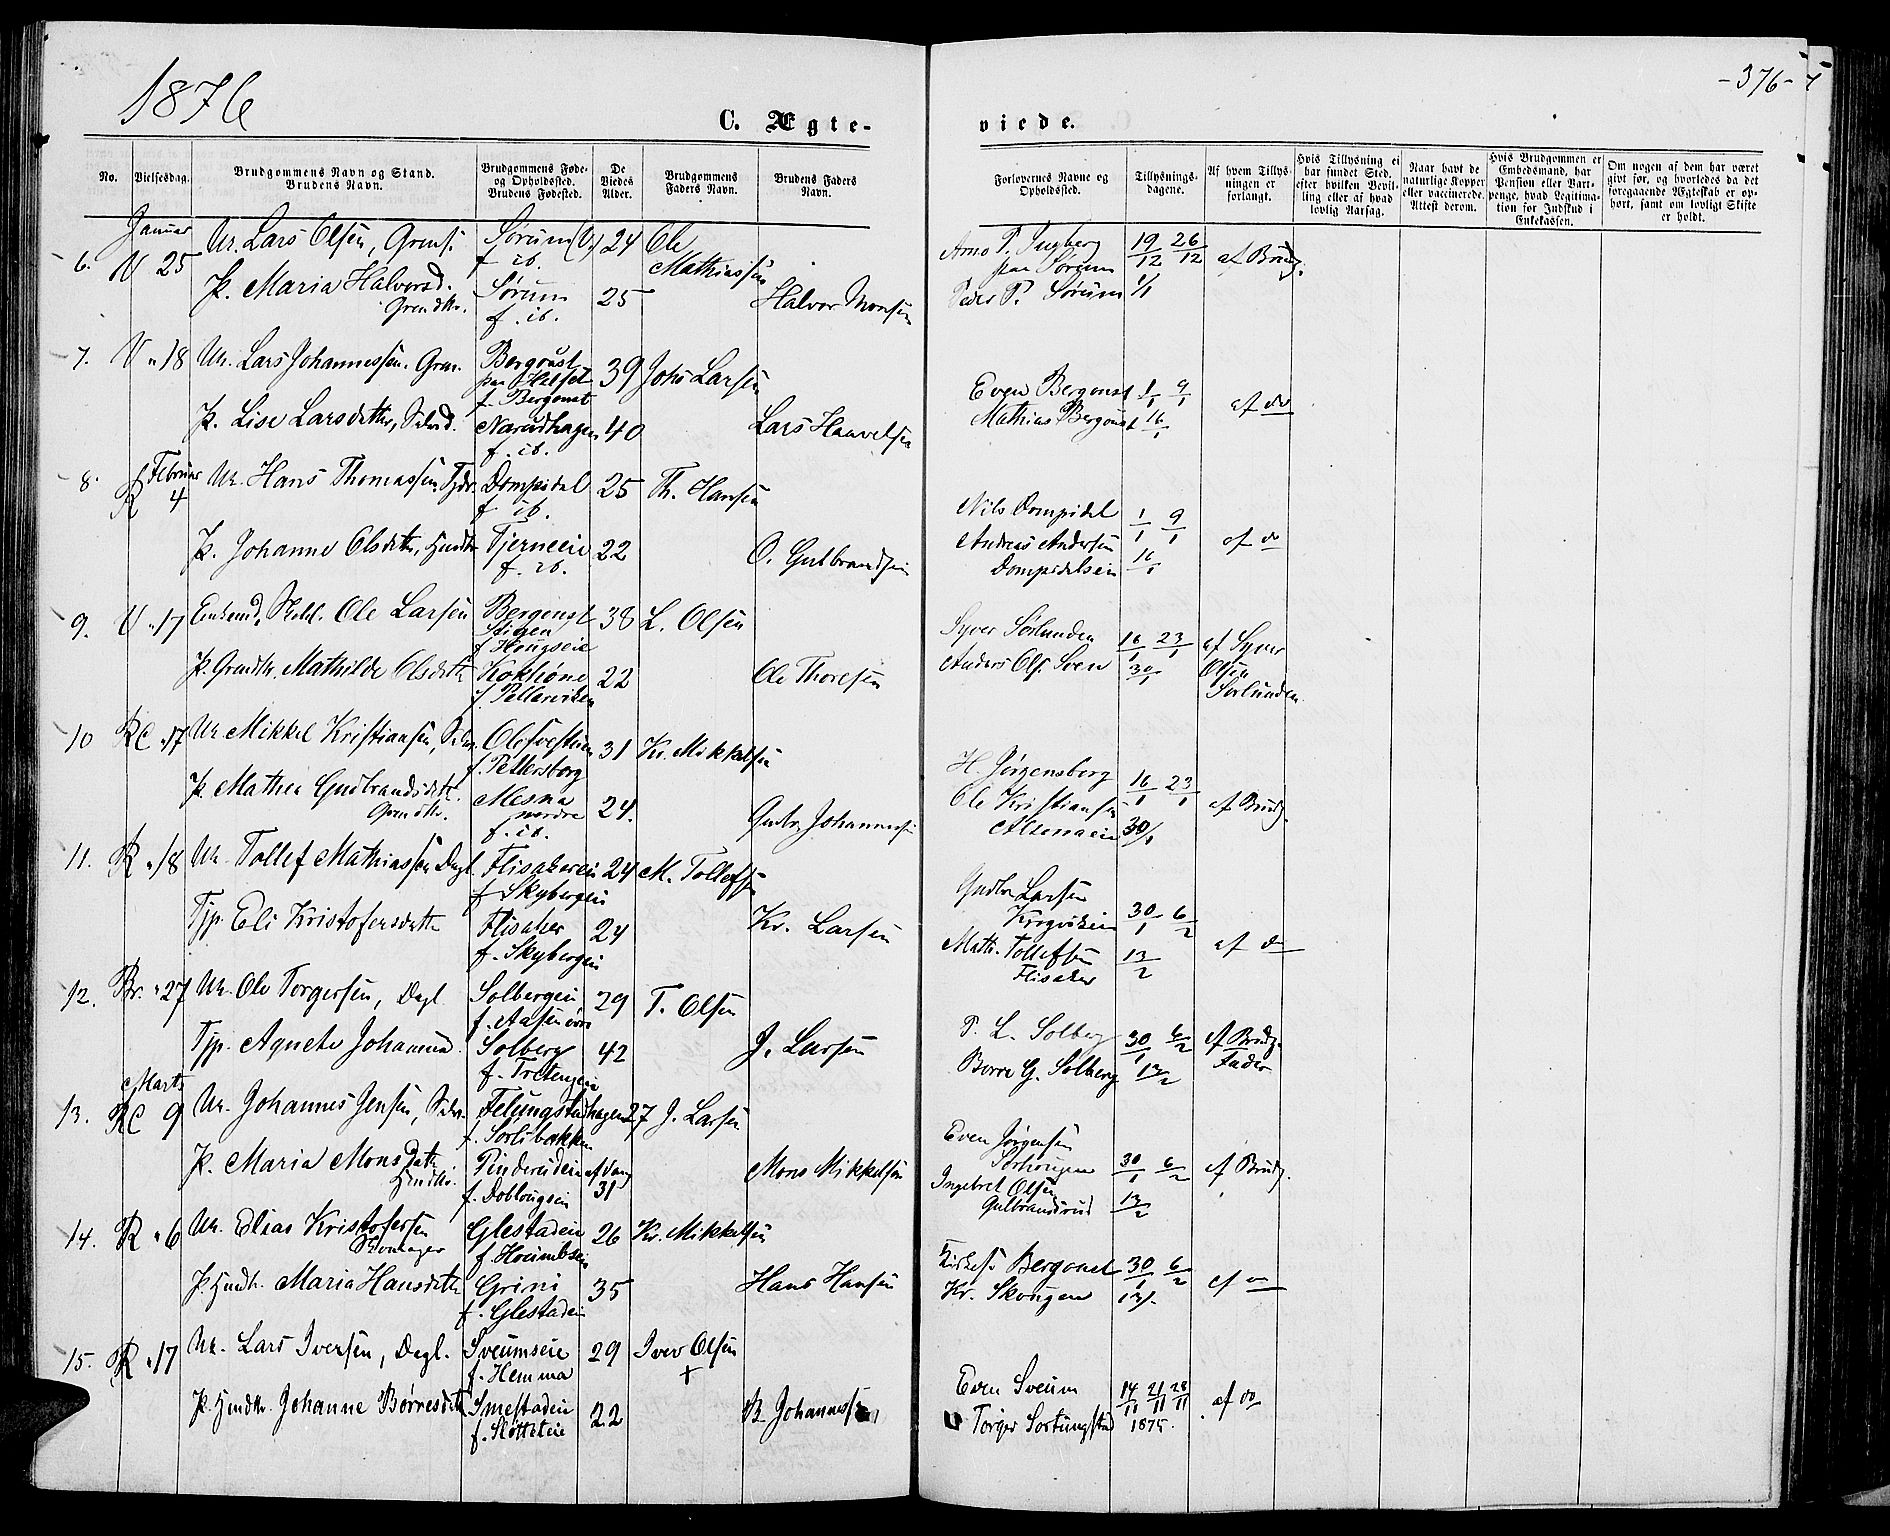 1876
C. Ægte-
No.
Vielsesdag.
Brudgommens Navn og Stand.
Brudens Navn.
Brudgommens Føde-
og Opholdssted.
Brudens Fødested.
De
Viedes
Alder.
Brudgommens
Faders Navn.
Brudens Faders
Navn.
Januar
6. V 25 Ur. Lars Olsen, Grmsf. Sørum (V.) 24 Ole
f. ib. Mathiassen
P. Maria Halvorsd. Sørum 25 Halvor Monsen
Grmdtr. f. ib.
7. V " 18 Ur. Lars Johannessen. Grm. Bergoust 39 Johs Larsen
paa
f. Bergoust
P. Lise Larsdatter, Narudhagen 40 Lars Haavelsen
f. ib.
8. Februar
R 4 Ur. Hans Thomassen Dompidal 25 Th. Hansen
f. ib.
P. Johanne Olsdtr, Tjerneeie 22 O. Gulbrandsen
f. ib.
9. V " 17 Enkemd, Ole Larsen Bergenst 38 L. Olsen
Stigen
f. Hougseie
P. Grmdtr. Mathilde Olsdtr 22 Ole Thoresen
10 RC " 17 Ur Mikkel Kristiansen, 31 Kr. Mikkelsen
f. Pettersborg
P. Mathea Gudbrandsdtr. Mesna 24. Gudbr Johannessen
Grmdtr. nordre
f. ib.
11. R " 18 Ur. Tollef Mathiassen Dagl. Flisakereie 24 M. Tollefsen
f. Skybergeie
Tjp. Eli Kristofersdatter Flisaker 24 Kr. Larsen
f. Skybergeie
12. Br. " 27 Ur. Ole Torgersen, Dagl Solbergeie 29 T. Olsen
Tjp. Agnete Johannesd. Solberg 42 J. Larsen
f. Tretengeie
Marts
13. RC 9 Ur. Johannes Jensen, Felungstadhagen 27 J. Larsen
f. Sorlibakken
P. Maria Monsdatter Pinderudeie 31 Mons Mikkelsen
f. Doblougeie
14. R " 6 Ur. Elias Kristofersen Glestadeie 26 Kr. Mikkelsen
Skomager
P. Maria Hansdatter Grini 35 Hans Hansen
f. Glestadeie
15. R " 17 Ur. Lars Iversen, Dagl. Sveumseie 29 Iver Olsen
f. Hemma +
P. Johanne Børresdtr Smestadeie 22 B. Johannessen
f. Slotteteie
-376-
viede.
Forlovernes Navne og
Opholdssted.
Tillysnings-
dagene.
Af hvem Tillys-
ningen er
forlangt.
Hvis Tillysning ei
har fundet Sted,
efter hvilken Bevil-
ling eller af hvad
lovlig Aarsag.
Naar havt de
naturlige Kopper
eller vaccinerede.
Attest derom.
Hvis Brudgommen er
Embedsmand, har
Pension eller Vart-
penge, hvad Legitima-
tion for Indskud i
Enkekassen.
Om nogen af dem har været
gift før, og hvorledes da det
foregaaende Ægteskab er op-
hørt, samt om lovligt Skifte
er holdt.
Arno P. Jugberg 19/12 26/12 af Brudg.
paa Sørum
Peder P. Sørum 1/1
Even Bergoust 1/1 9/1 af do
Mathias Bergoust 16/1
Nils Dompidal 1/1 9/1 af do
Andreas Andersen 16/1
Dompidalseie
Syver Sørlunden 16/1 23/1 af Syver
Anders Ols. Sveen 30/1 Olsen
Sørlunden
H. Jørgensborg 16/1 23/1 af Brudg.
Ole Kristiansen
30/1
Gudbr Larsen
Krogvikeie 30/1 6/2 af do
Math. Tollefsen 13/2
Flisaker
P. L. Solberg 30/1 6/2 af Brudg.
Børre G. Solberg 13/2 Fader
Even Jørgensen
30/1 6/2 af Brudg.
Ingebret Olsen
Gulbrandsrud 13/2
Bergoust 30/1 6/2 af do
Kr. Skougen 13/.
Even Sveum 14/11 21/11 28/11 af do
Torger Sortungstad 1875.